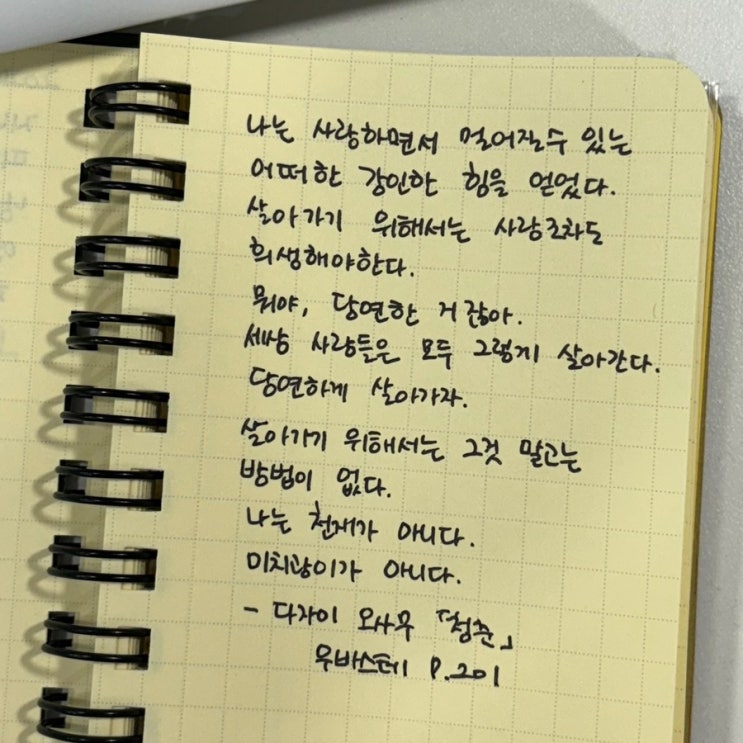 나는 사랑하면서 멀어질수 있는
어떠한 강인한 힘을 얻었다.
살아가기 위해서는 사랑조차도
희생해야한다.
뭐야, 당연한 거잖아.
세상 사람들은 모두 그렇게 살아간다.
당연하게 살아가자.
살아가기 위해서는 그것 말고는
방법이 없다.
나는 천재가 아니다.
미치광이가 아니다.
- 다자이 오사무 「청춘」
우바스테 P.201